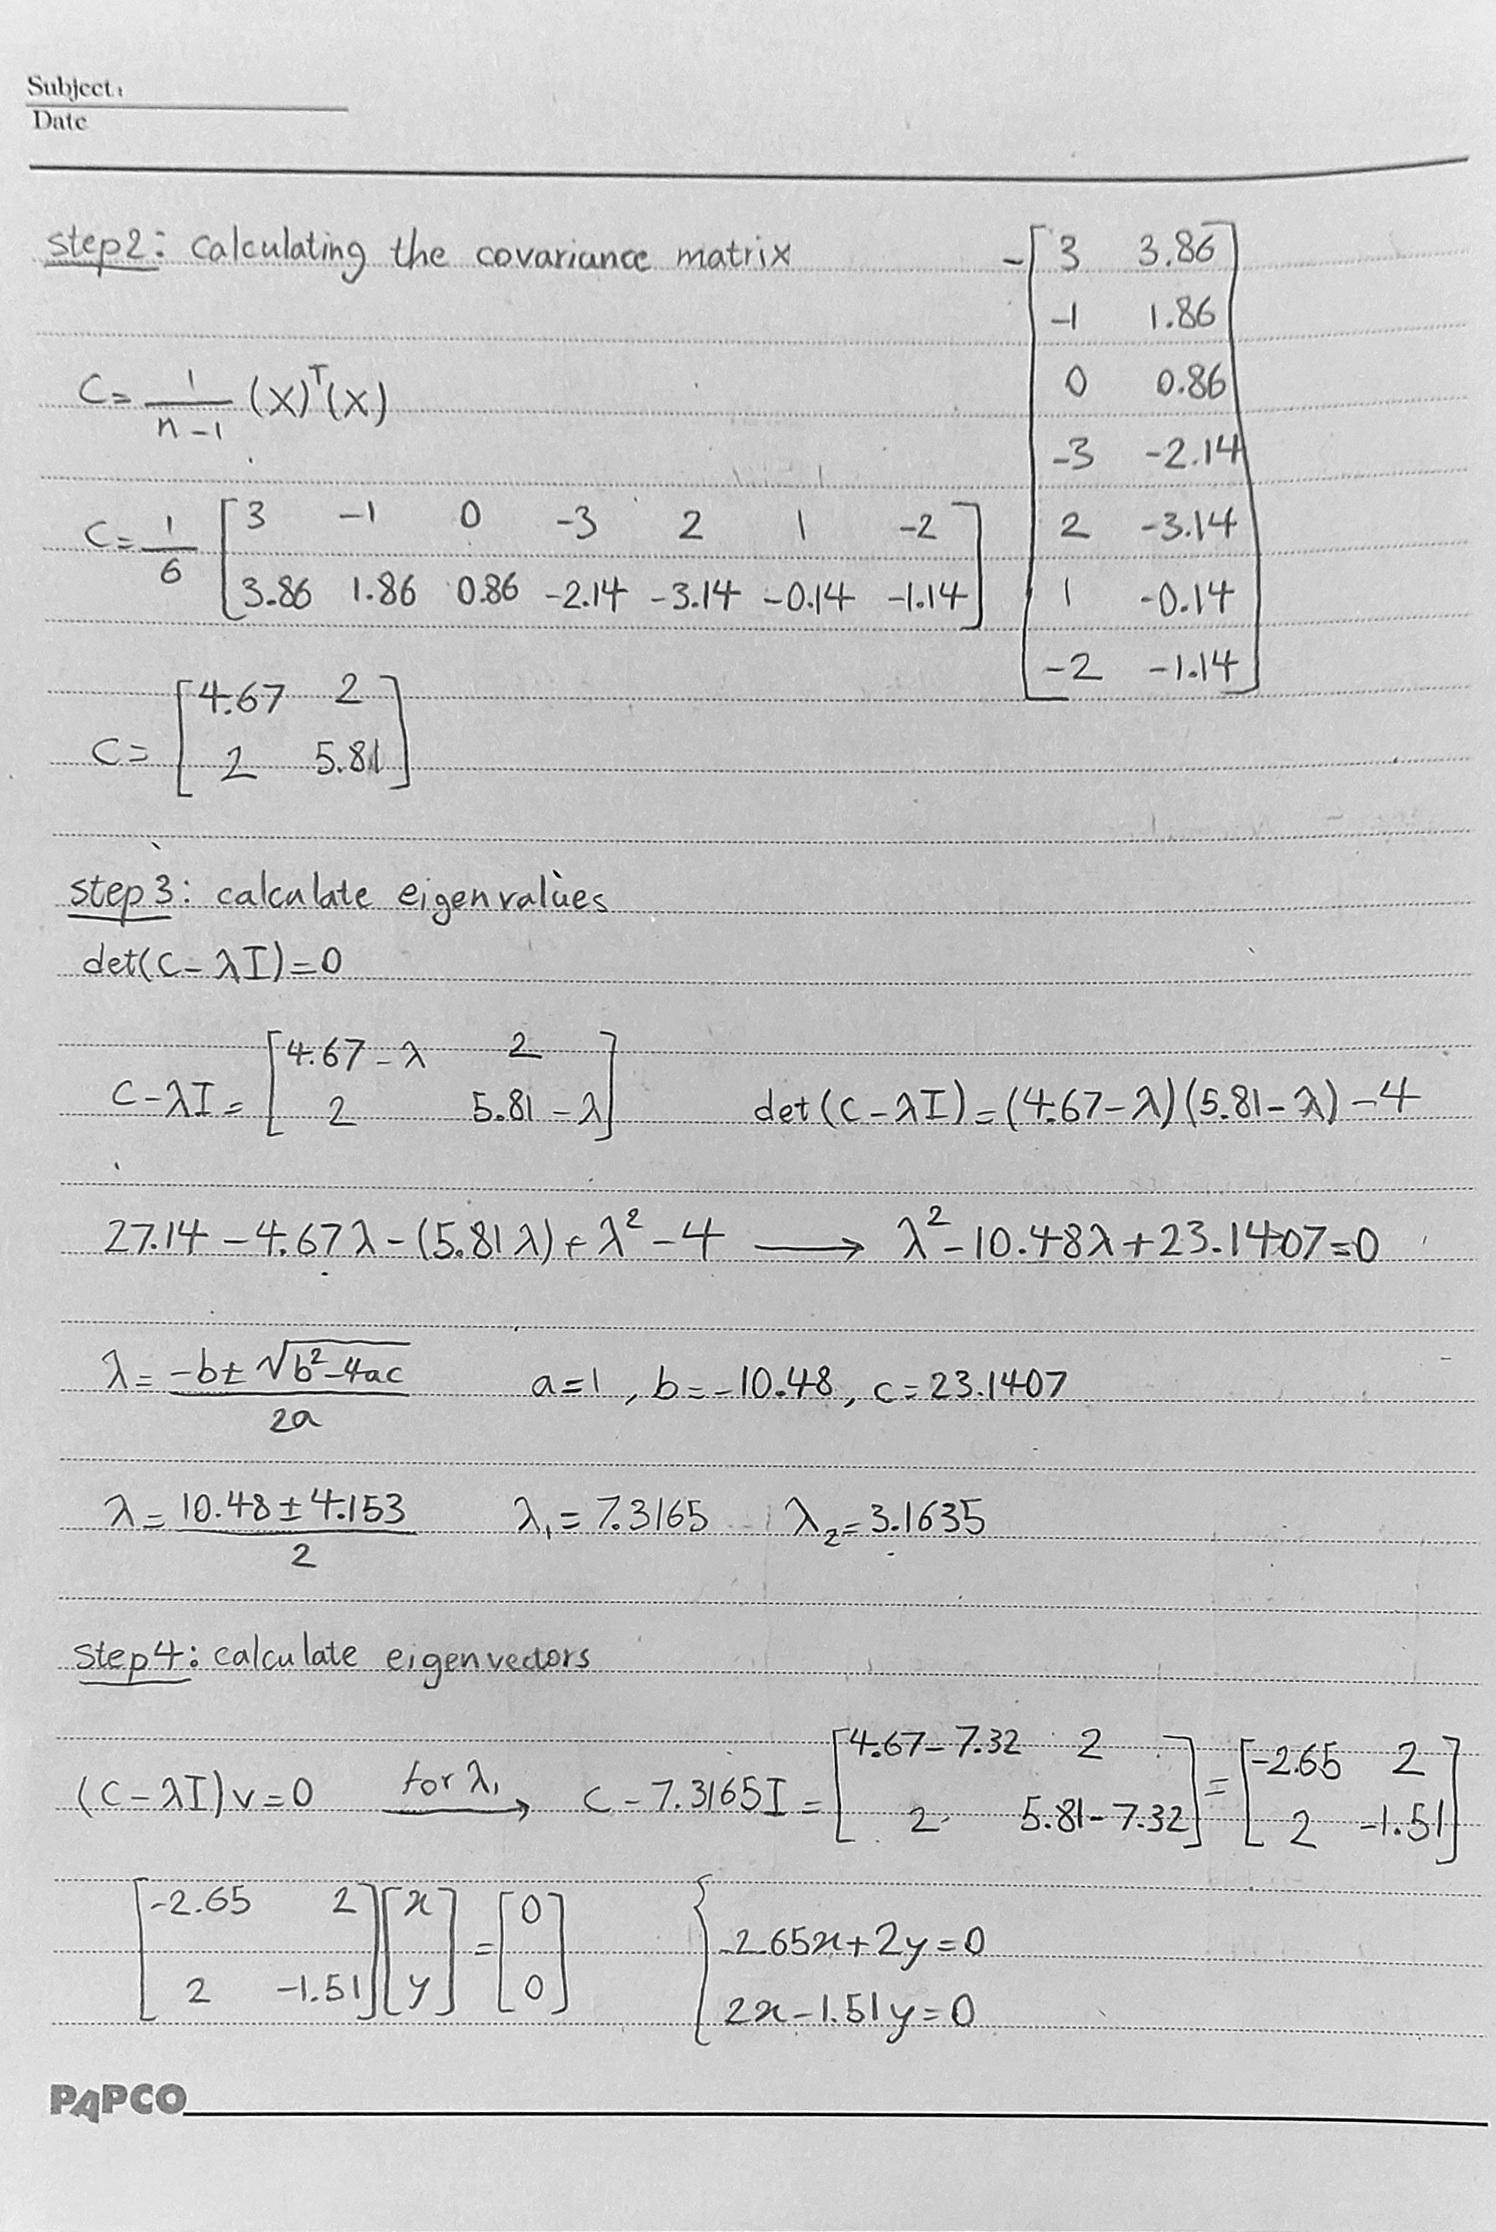 Subject:
Date
step2: calculating the covariance matrix
C = 1/(n-1) (X)^T(X)
C = 1/6 [3 -1 0 -3 2 1 -2
3.86 1.86 0.86 -2.14 -3.14 -0.14 -1.14]
-[3 3.86
-1 1.86
0 0.86
-3 -2.14
2 -3.14
1 -0.14
-2 -1.14]
C = [4.67 2
2 5.81]
step3: calculate eigenvalues
det(C-λI)=0
C-λI = [4.67-λ 2
2 5.81-λ] det(C-λI)=(4.67-λ)(5.81-λ)-4
27.14-4.67λ-(5.81λ)+λ²-4 ⟶ λ²-10.48λ+23.1407=0
λ = (-b±√(b²-4ac))/2a a=1, b=-10.48, c=23.1407
λ = (10.48±4.153)/2 λ₁=7.3165 λ₂=3.1635
step4: calculate eigenvectors
(C-λI)v=0 for λ₁ ⟶ C-7.3165I = [4.67-7.32 2
2 5.81-7.32] = [-2.65 2
2 -1.51]
[-2.65 2
2 -1.51] [x
y] = [0
0]
{-2.65x+2y=0
2x-1.51y=0
PAPCO